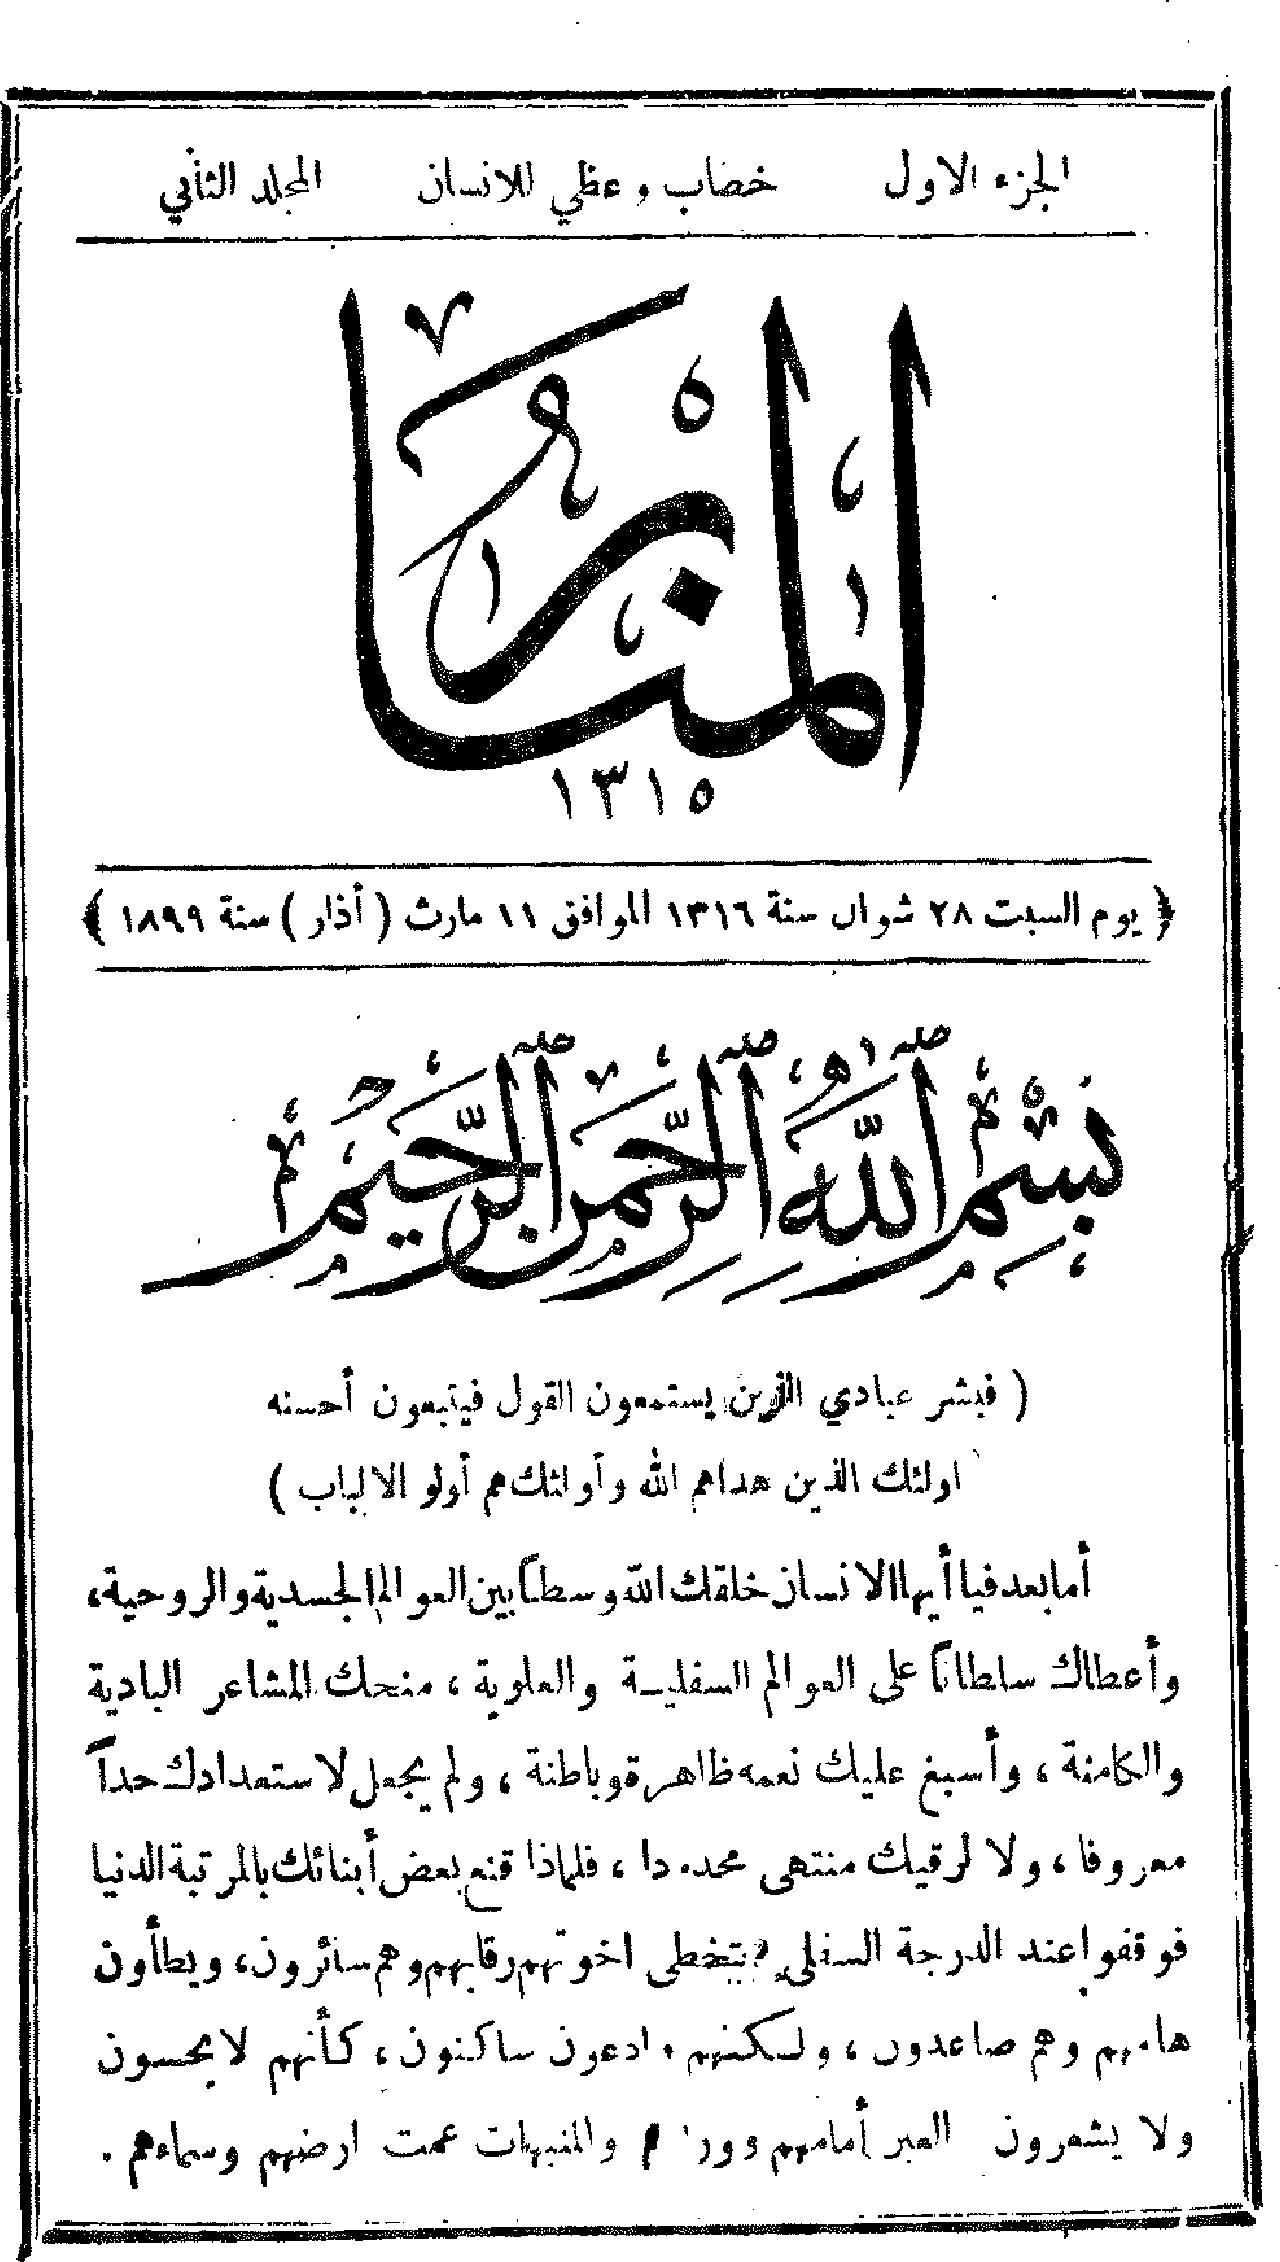 الجزء الاول خطاب وعظي للانسان المجلد الثاني
المنار
١٣١٥
﴿ يوم السبت ٢٨ شوال سنة ١٣١٦ الموافق ١١ مارث ( أذار ) سنة ١٨٩٩ ﴾
بسم الله الرحمن الرحيم
( فبشر عبادي الذين يستمعون القول فيتبعون أحسنه
اولئك الذين هداهم الله وأولئك هم أولو الالباب )
أما بعد فيا أيها الانسان خلقك الله وسطاً بين العوالم الجسدية والروحية،
وأعطاك سلطاناً على العوالم السفليـة والعلوية ، منحك المشاعر البادية
والكامنة ، وأسبغ عليك نعمه ظاهرة وباطنة ، ولم يجعل لاستعدادك حداً
معروفا ، ولا لرقيك منتهى محدودا ، فلماذا قنع بعض أبنائك بالمرتبة الدنيا
فوقفوا عند الدرجة السفلى ? يتخطى اخوتهم رقابهم وهم سائرون، ويطأون
هامهم وهم صاعدون ، ولـكنهم وادعون ساكنون ، كأنهم لا يحسون
ولا يشعرون العبر أمامهم والمنبهات عمت ارضهم وسماءهم .